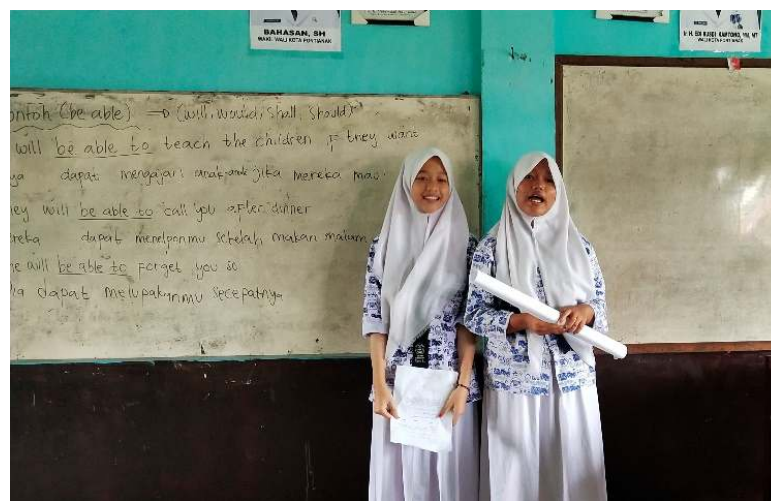 BAHASAN, SH
WAKIL WALI KOTA PONTIANAK
Ir. H. EDI RUSDI KAMTONO, MM, MT
WALIKOTA PONTIANAK
ontoh (be able) → (will, would, shall, should)
will be able to teach the children if they want
ya dapat mengajari anak-anak jika mereka mau
ey will be able to call you after dinner
ereka dapat menelponmu setelah makan malam
he will be able to forget you so
ia dapat melupakanmu secepatnya